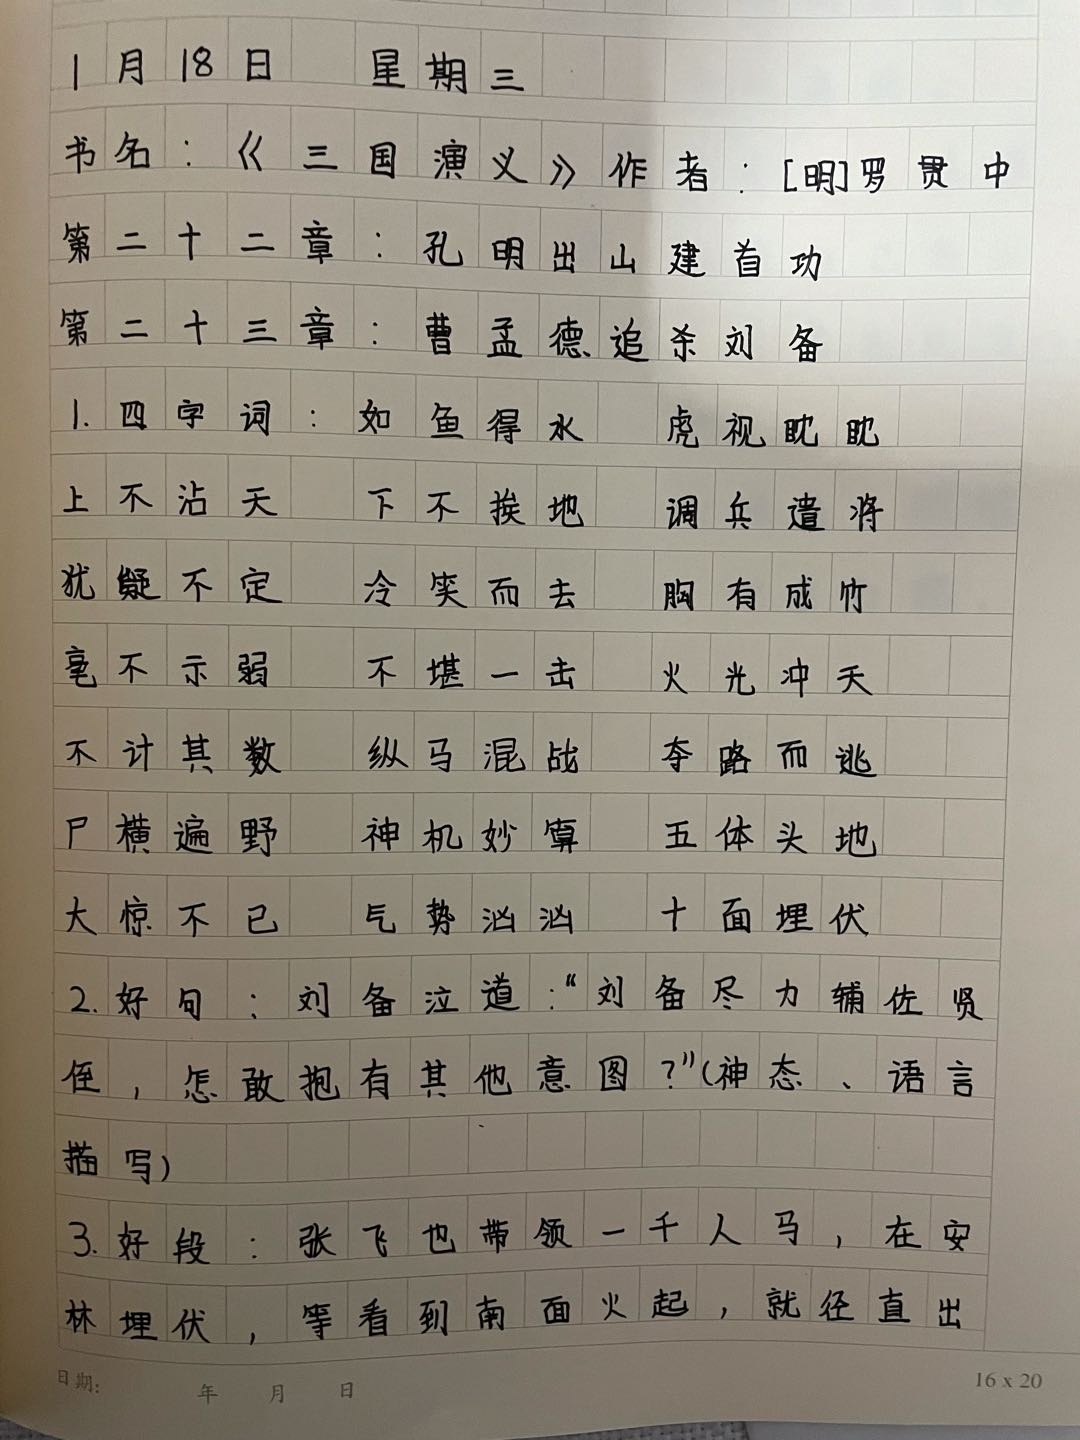 1月18日 星期三
书名：《三国演义》作者：[明]罗贯中
第二十二章：孔明出山建首功
第二十三章：曹孟德追杀刘备
1.四字词：如鱼得水 虎视眈眈
上不沾天 下不挨地 调兵遣将
犹疑不定 冷笑而去 胸有成竹
毫不示弱 不堪一击 火光冲天
不计其数 纵马混战 夺路而逃
尸横遍野 神机妙算 五体头地
大惊不已 气势汹汹 十面埋伏
2.好句：刘备泣道：“刘备尽力辅佐贤
侄，怎敢抱有其他意图？”(神态、语言
描写)
3.好段：张飞也带领一千人马，在安
林埋伏，等看到南面火起，就径直出
日期： 年 月 日
16 x 20